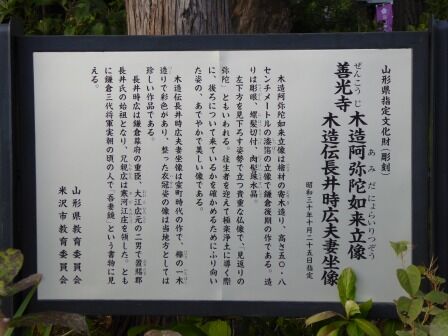 山形県指定文化財(彫刻)
ぜんこうじ
あみだにょらいりつぞう
善光寺
木造阿弥陀如来立像
木造伝長井時広夫妻坐像
昭和三十年十月二十五日指定
木造阿弥陀如来立像は檜材の寄木造り、高さ五〇・八
センチメートルの漆箔の立像で鎌倉後期の作である。造
りは彫眼、螺髪切付、肉髻珠水晶。
左下方を見下ろす姿勢で立つ貴重な仏像で、「見返りの
弥陀」ともいわれる。往生者を迎えて極楽浄土に導く際
に、後ろについて来ているかを確かめるためにふり向い
た姿の、あでやかで美しい像である。
木造伝長井時広夫妻坐像は室町時代の作で、欅の一木
造りで彩色があり、整った衣冠姿の像は当地方としては
珍しい作品である。
長井時広は鎌倉幕府の重臣、大江広元の二男で置賜郡
長井氏の始祖となり、兄親広は寒河江庄を領した。とも
に鎌倉三代将軍実朝の頃の人で、「吾妻鏡」という書物に見
える。
山形県教育委員会
米沢市教育委員会